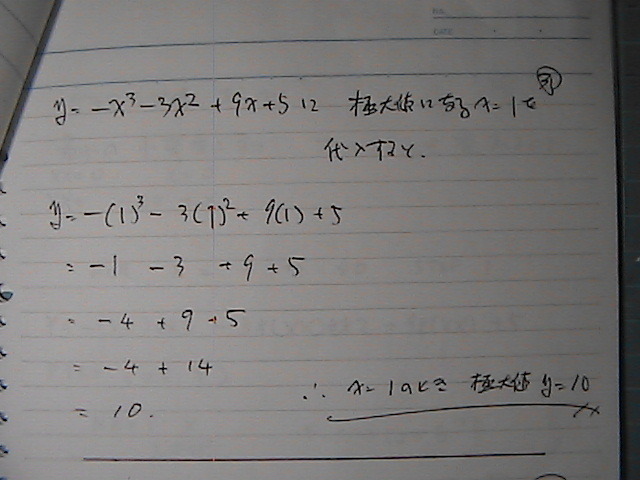 NO.
DATE
y = -x³ - 3x² + 9x + 5 に 極大値になる x = 1 を
代入すると.
y = -(1)³ - 3(1)² + 9(1) + 5
= -1 - 3 + 9 + 5
= -4 + 9 + 5
= -4 + 14
= 10.
∴ x = 1 のとき 極大値 y = 10